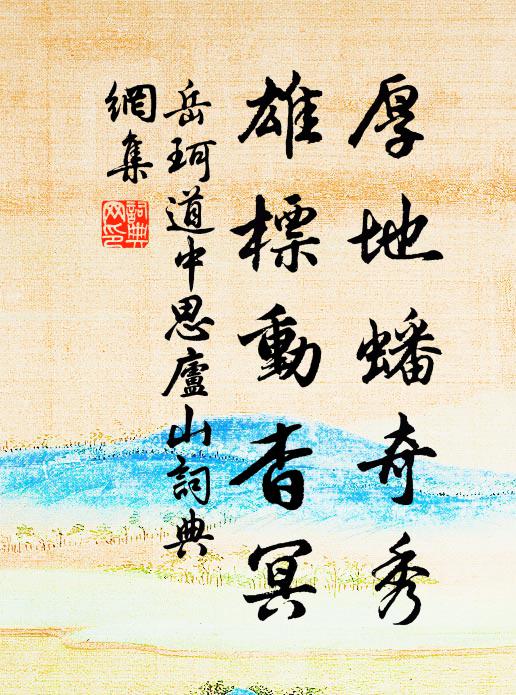 厚地蟠奇秀
雄標動杳冥
岳珂道中思廬山詞典
網集
詞典網印